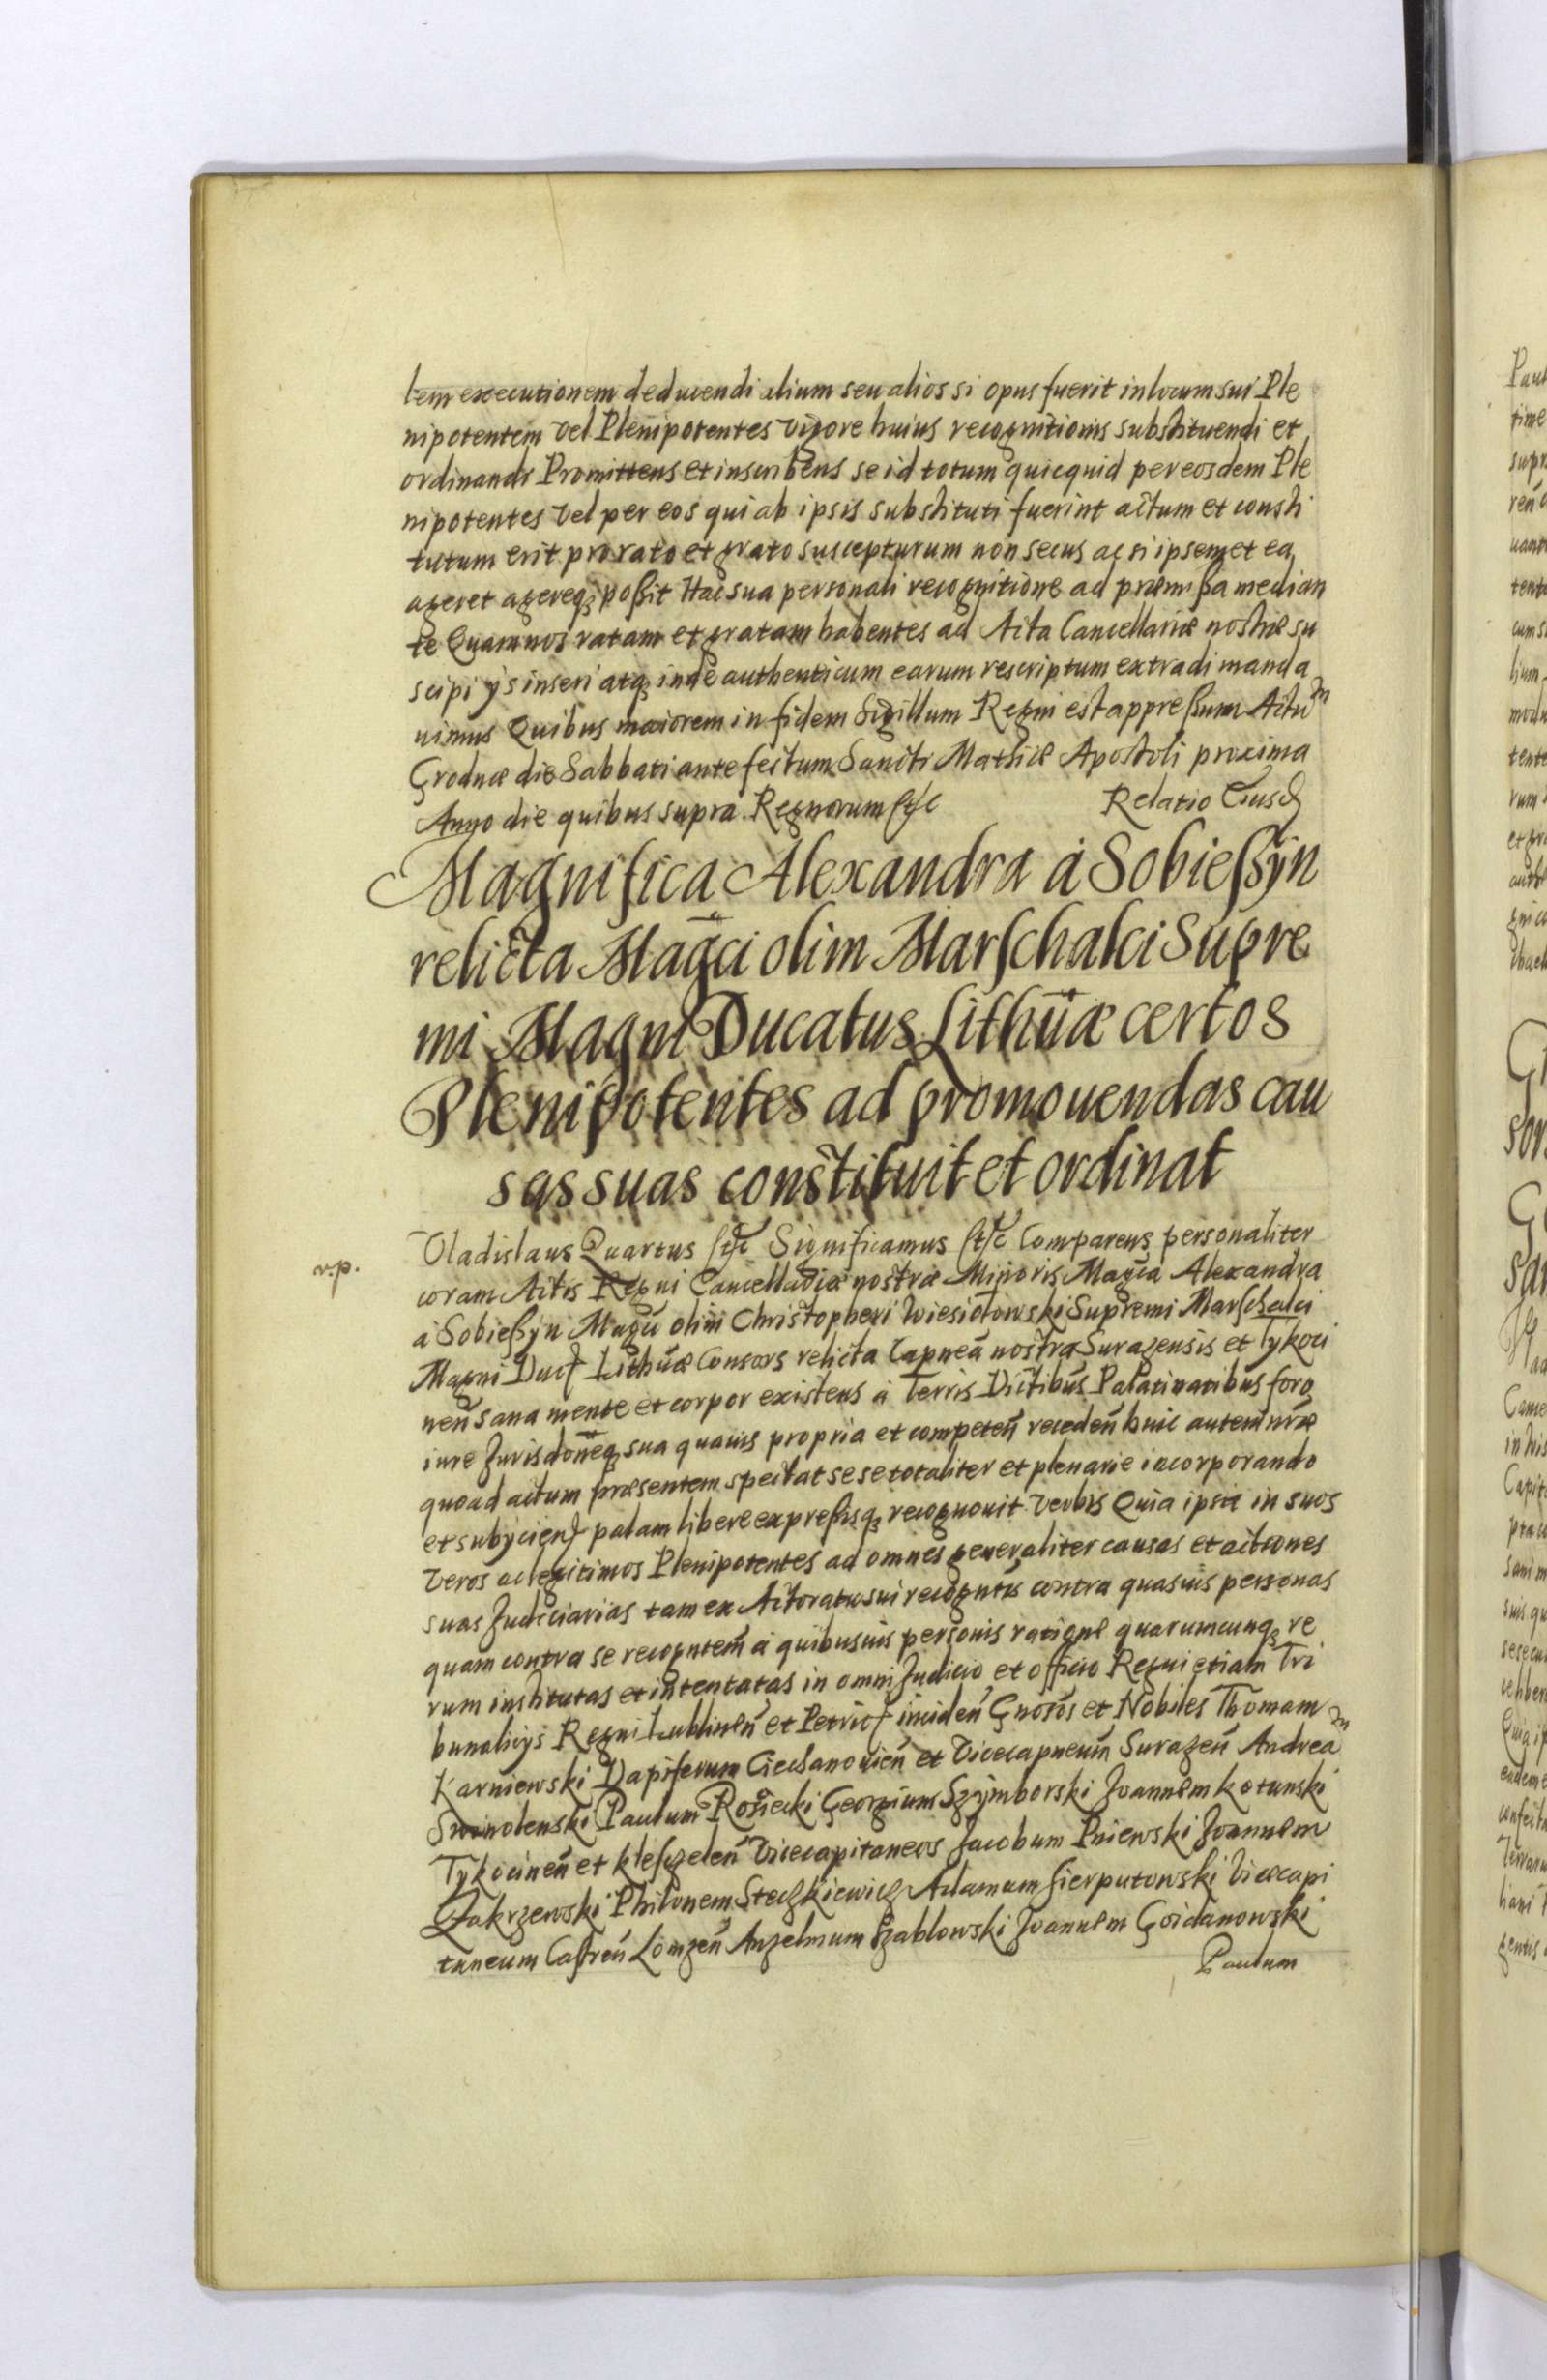 lem executionem deducendi alium seu alios si opus fuerit in locum sui Ple
nipotentem vel Plenipotentes vigore huius recognitionis substituendi et
ordinandi Promittens et inscribens se id totum quicquid per eosdem Ple
nipotentes vel per eos qui ab ipsis substituti fuerint actum et consti
tutum erit pro rato et grato suscepturum non secus ac si ipsemet ea
ageret agereq₃ poßit Hac sua personali recognitione ad præmißa median
te Quam nos ratam et gratam habentes ad Acta Cancellariæ nostræ su
scipi ijs inseri atq₃ inde authenticum earum rescriptum extradi manda
uimus Quibus maiorem in fidem Sigillum Regni est appreßum Actum
Grodnæ die Sabbati ante festum Sancti Mathiæ Apostoli proxima
Anno die quibus supra Regnorum etc Relatio Eiusd
Magnifica Alexandra à Sobießyn
relicta Magci olim Marschalci Supre
mi Magni Ducatus Lithuæ certos
Plenipotentes ad promouendas cau
sas suas constituit et ordinat
v.p.
Vladislaus Quartus etc Significamus etc Comparens personaliter
coram Actis Regni Cancellariæ nostræ Minoris Magca Alexandra
à Sobießyn Magci olim Christopheri Wiesiołowski Supremi Marschalci
Magni Duc Lithuæ Consors relicta Capnea nostra Surazensis et Tykoci
nen sana mente et corpor existens à Terris Dictibus Palatinatibus foro
iure Jurisdoneq₃ sua quauis propria et competen receden huic autem nræ
quoad actum præsentem spectat sese totaliter et plenarie incorporando
et subyciend palam libere expreßisq₃ recognouit verbis Quia ipsa in suos
veros ac legitimos Plenipotentes ad omnes generaliter causas et actiones
suas Judiciarias tam ex Actoratu sui recogntis contra quasuis personas
quam contra se recogntem à quibusuis personis ratione quarumcunq₃ re
rum institutas et intentatas in omni Judicio et officio Regni etiam Tri
bunalicys Regni Lublinen et Petric inciden Gnosos et Nobiles Thomam
Karniewski Dapiferum Ciechanouien et Vicecapneum Surazen Andream
Smolenski Paulum Rosiecki Georgium Szymborski Joannem Kotunski
Tykocinen et Kleszelen Vicecapitaneos Jacobum Pniewski Joannem
Zakrzewski Philonem Steczkiewicz Adamum Sierputowski Vicecapi
taneum Castren Lomzen Anzelmum Szablowski Joannem Goidanowski
Paulum